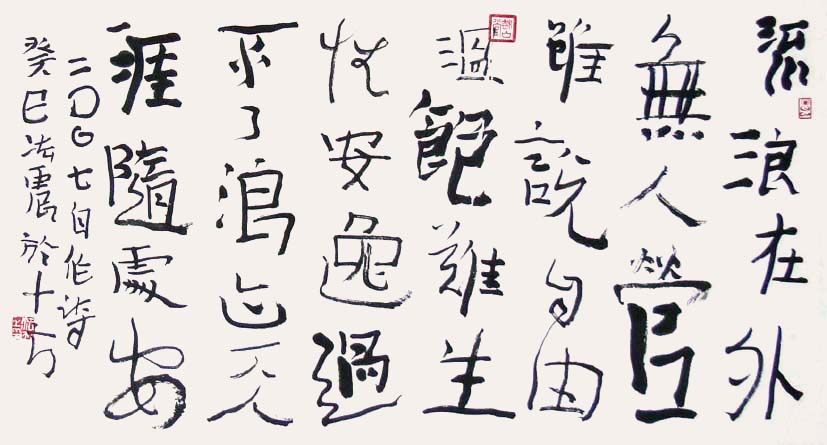 流浪在外
無人管
雖說自由
温飽難生
性安逸過
不了浪迹天
涯隨處安
二〇〇七自作詩
癸巳法震於十方